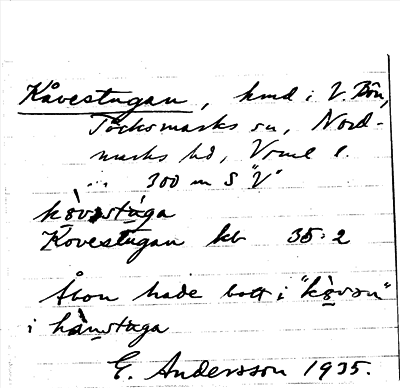 Kåvestugan, hmd i V. Bön,
Töcksmarks sn, Nord-
marks hd, Vrml l.
... 300 m S "V"
kòvəstùga
Kovestugan kb 35:2
Åbon hade bott i "kòvən"
i hànstuga
E. Andersson 1935.